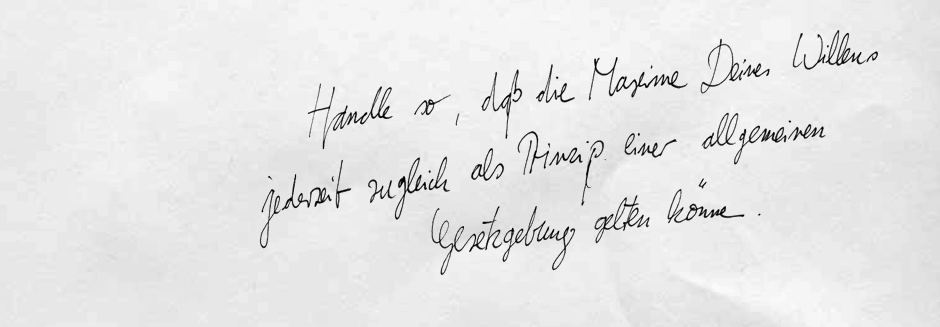 Handle so, daß die Maxime Deines Willens
jederzeit zugleich als Prinzip einer allgemeinen
Gesetzgebung gelten könne.